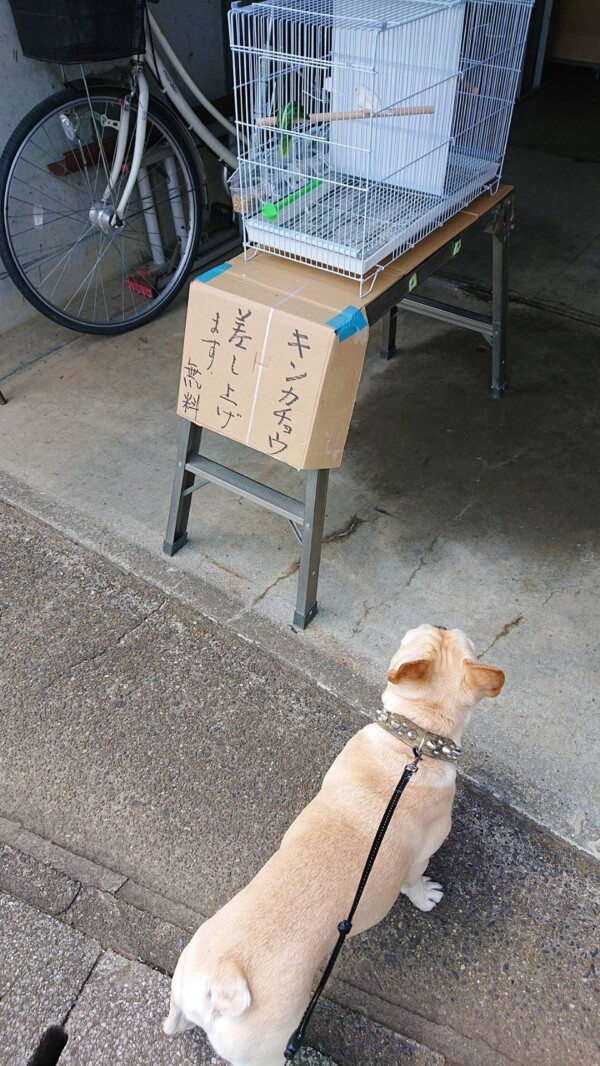 キンカチョウ
差し上げ
ます
無料